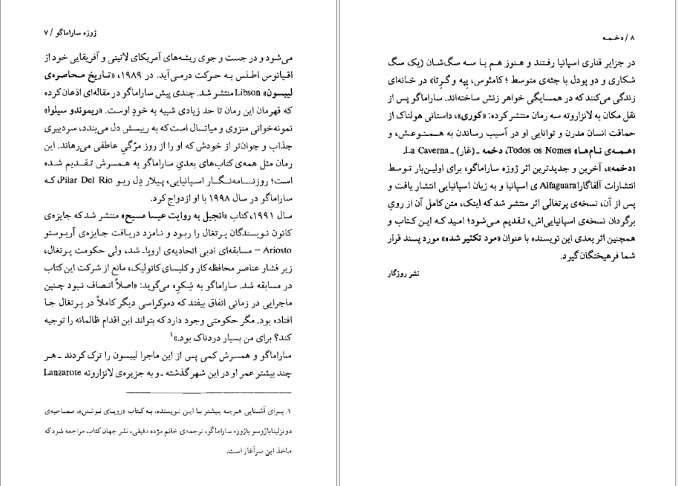 ژوزه ساراماگو / ۷
می‌شود و در جست و جوی ریشه‌های آمریکای لاتینی و آفریقایی خود از
اقیانوس اطلس به حرکت درمی‌آید. در ۱۹۸۹، «تاریخ محاصره‌ی
لیبسون» Libson منتشر شد. چندی پیش ساراماگو در مقاله‌ای اذعان کرده
که قهرمان این رمان تا حد زیادی شبیه به خود اوست. «ریموندو سیلوا»
نمونه‌خوانی منزوی و میانسال است که به رییسش دل می‌بندد، سردبیری
جذاب و جوان‌تر از خودش که او را از روز مرّگیِ عاطفی می‌رهاند. این
رمان مثل همه‌ی کتاب‌های بعدی ساراماگو به همسرش تقدیم شده
است؛ روزنامه‌نگار اسپانیایی، پیلار دِل ریو Pilar Del Rio، که
ساراماگو در سال ۱۹۹۸ با او ازدواج کرد.
سال ۱۹۹۱، کتاب «انجیل به روایت عیسا مسیح» منتشر شد که جایزه‌ی
کانون نویسندگان پرتغال را ربود و نامزد دریافت جایزه‌ی آریوستو
Ariosto – مسابقه‌ای ادبی اتحادیه‌ی اروپا– شد، ولی حکومت پرتغال،
زیر فشار عناصر محافظه‌کار و کلیسای کاتولیک، مانع از شرکت این کتاب
در مسابقه شد. ساراماگو به شِکوِه می‌گوید: «اصلاً انصاف نبود چنین
ماجرایی در زمانی اتفاق بیفتد که دموکراسی دیگر کاملاً در پرتغال جا
افتاده بود. مگر حکومتی وجود دارد که بتواند این اقدام ظالمانه را توجیه
کند؟ برای من بسیار دردناک بود.»۱
ساراماگو و همسرش کمی پس از این ماجرا لیبسون را ترک کردند ـ هر
چند بیشتر عمر او در این شهر گذشته ـ و به جزیره‌ی لانزاروته Lanzarote
۱. برای آشنایی هرچه بیشتر با این نویسنده، به کتاب «رویای نوشتن»، مصاحبه‌ی
دونزلینا باژوسو با ژوزه ساراماگو، ترجمه‌ی خانم مژده دقیقی، نشر جهان کتاب مراجعه شود که
ماخذ این سرآغاز است.
۸ / دخمه
در جزایر قناری اسپانیا رفتند و هنوز هم با سه سگ‌شان (یک سگ
شکاری و دو پودل با جثه‌ی متوسط ؛ کامئوس، پپه و گرتا») در خانه‌ای
زندگی می‌کنند که در همسایگی خواهر زنش ساخته‌اند. ساراماگو پس از
نقل مکان به لانزاروته سه رمان منتشر کرده: «کوری»، داستانی هولناک از
حماقت انسان مدرن و توانایی او در آسیب رساندن به همنوعش، و
«همه‌ی نام‌ها» Todos os Nomes، دخمه ـ (غار) ـ La Caverna.
«دخمه»، آخرین و جدیدترین اثر ژوزه ساراماگو، برای اولین‌بار توسط
انتشارات آلفاگارا Alfaguara ی اسپانیا و به زبان اسپانیایی انتشار یافت و
پس از آن، نسخه‌ی پرتغالی اثر منتشر شد که اینک، متن کامل آن از رویِ
برگردان نسخه‌ی اسپانیایی‌اش، تقدیم می‌شود؛ امید که این کتاب و
همچنین اثر بعدی این نویسنده با عنوان «مرد تکثیر شده» مورد پسند قرار
شما فرهیختگان گیرد.
نشر روزگار